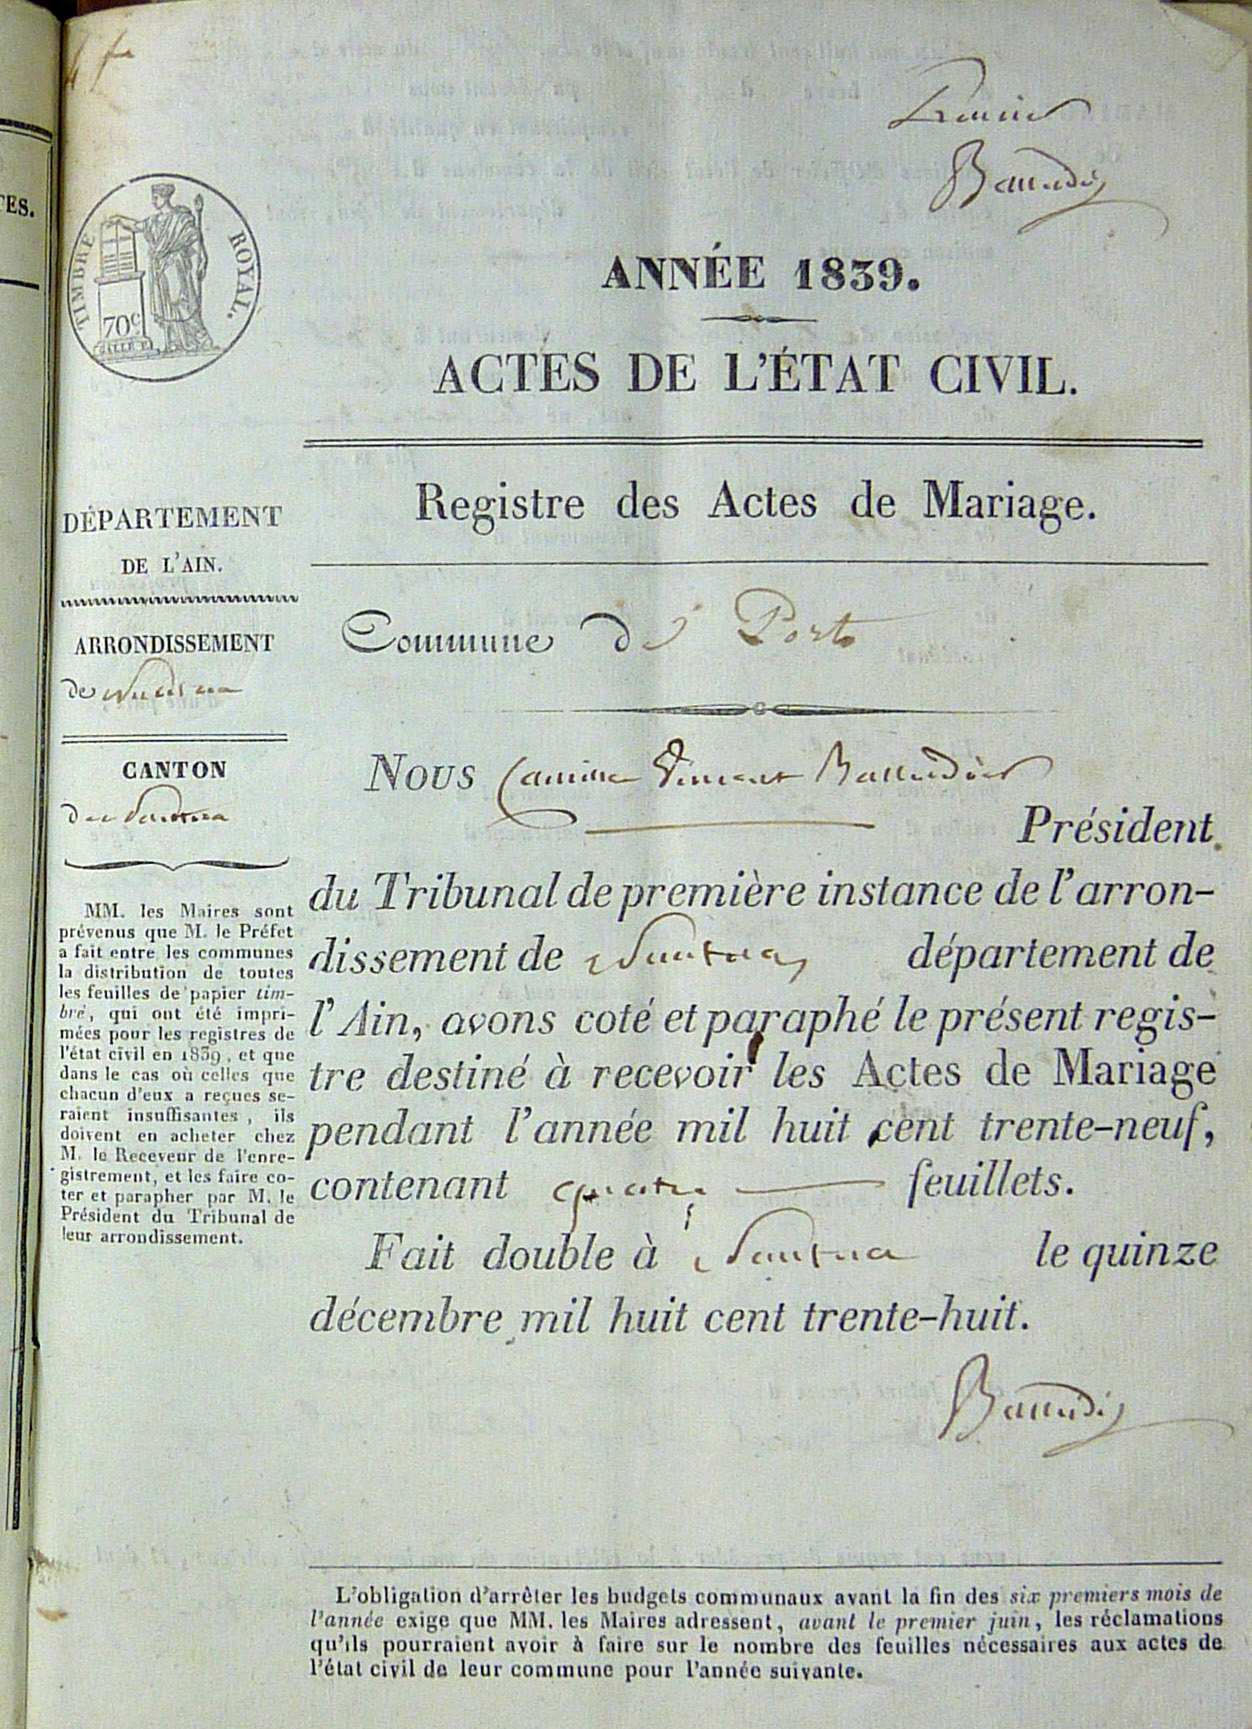 4 f
Premier
TES.
TIMBRE ROYAL.
70c
ANNÉE 1839.
ACTES DE L'ÉTAT CIVIL.
Registre des Actes de Mariage.
DÉPARTEMENT
DE L'AIN.
ARRONDISSEMENT
de Nantua
CANTON
de Nantua
MM. les Maires sont
prévenus que M. le Préfet
a fait entre les communes
la distribution de toutes
les feuilles de papier tim-
bré, qui ont été impri-
mées pour les registres de
l'état civil en 1839, et que
dans le cas où celles que
chacun d'eux a reçues se-
raient insuffisantes, ils
doivent en acheter chez
M. le Receveur de l'enre-
gistrement, et les faire co-
ter et parapher par M. le
Président du Tribunal de
leur arrondissement.
Commune de Port
Nous Camille Vincent Baudier
Président
du Tribunal de première instance de l'arron-
dissement de Nantua département de
l'Ain, avons coté et paraphé le présent regis-
tre destiné à recevoir les Actes de Mariage
pendant l'année mil huit cent trente-neuf,
contenant quatre feuillets.
Fait double à Nantua le quinze
décembre mil huit cent trente-huit.
L'obligation d'arrêter les budgets communaux avant la fin des six premiers mois de
l'année exige que MM. les Maires adressent, avant le premier juin, les réclamations
qu'ils pourraient avoir à faire sur le nombre des feuilles nécessaires aux actes de
l'état civil de leur commune pour l'année suivante.